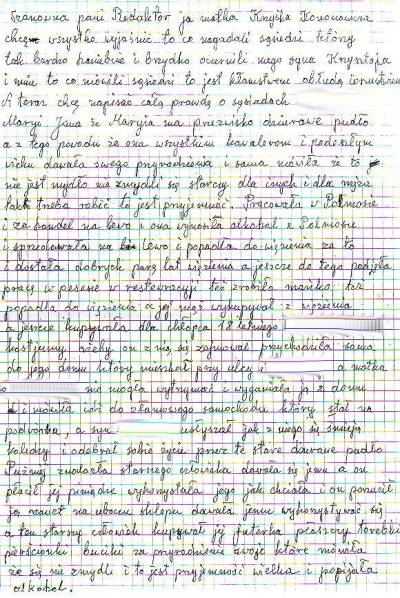 Szanowna pani Redaktor ja matka Krzyśka Kononowicza
chcę wszystko wyjaśnić to co nagadali sąsiedzi którzy
tak bardzo haniebnie i brzydko ocernili mego syna Krzysztofa
i mnie to co mówili sąsiedzi to jest kłamstwem obłudą
A teraz chcę napisać całą prawdę o sąsiadach
Maryi Jana że Maryia ma przezwisko dziurawe pudło
a z tego powodu że ona wszystkim kawalerom i podeszłym
wieku dawała swego przyrodzenia i sama mówiła że to
nie jest mydło nie zmydli się starczy dla innych i dla męża
tak trzeba robić to jest przyjemność. Pracowała w Polmosie
i za handel na lewo i ona wynosiła alkohol z Polmosie
i sprzedawała na lewo i popadła do więzienia za to
i dostała dobrych parę lat więzienia a jeszcze do tego podjęła
pracę w restauracji też zrobiła manko też
popadła do więzienia a jej mąż wykupywał z więzienia
a jeszcze kupywała dla chłopca 18 letniego
kostjumy, żeby on z nią się zajmował przychodziła sama
do jego domu który mieszkał przy ulicy a matka
nie mogła wytrzymać i wyganiała ją z domu
i mówiła idź do złamanego samochodu który stał na
podwórku, a syn usłyszał jak z niego się śmieją
koledzy i odebrał sobie życie przez te stare dziurawe pudło
Później znalazła starszego człowieka dawała się jemu a on
płacił jej pieniądze wykorzystała jego jak chciała i on porucił
ją nawet na uboczu sklepu dawała jemu wykorzystywać się
a ten starszy człowiek kupywał jej futerka płaszczy torebki
pierścionki buciki za przyrodzenie swoje które mówiła
że się nie zmydli i to jest przyjemność wielka i popijała
alkohol.